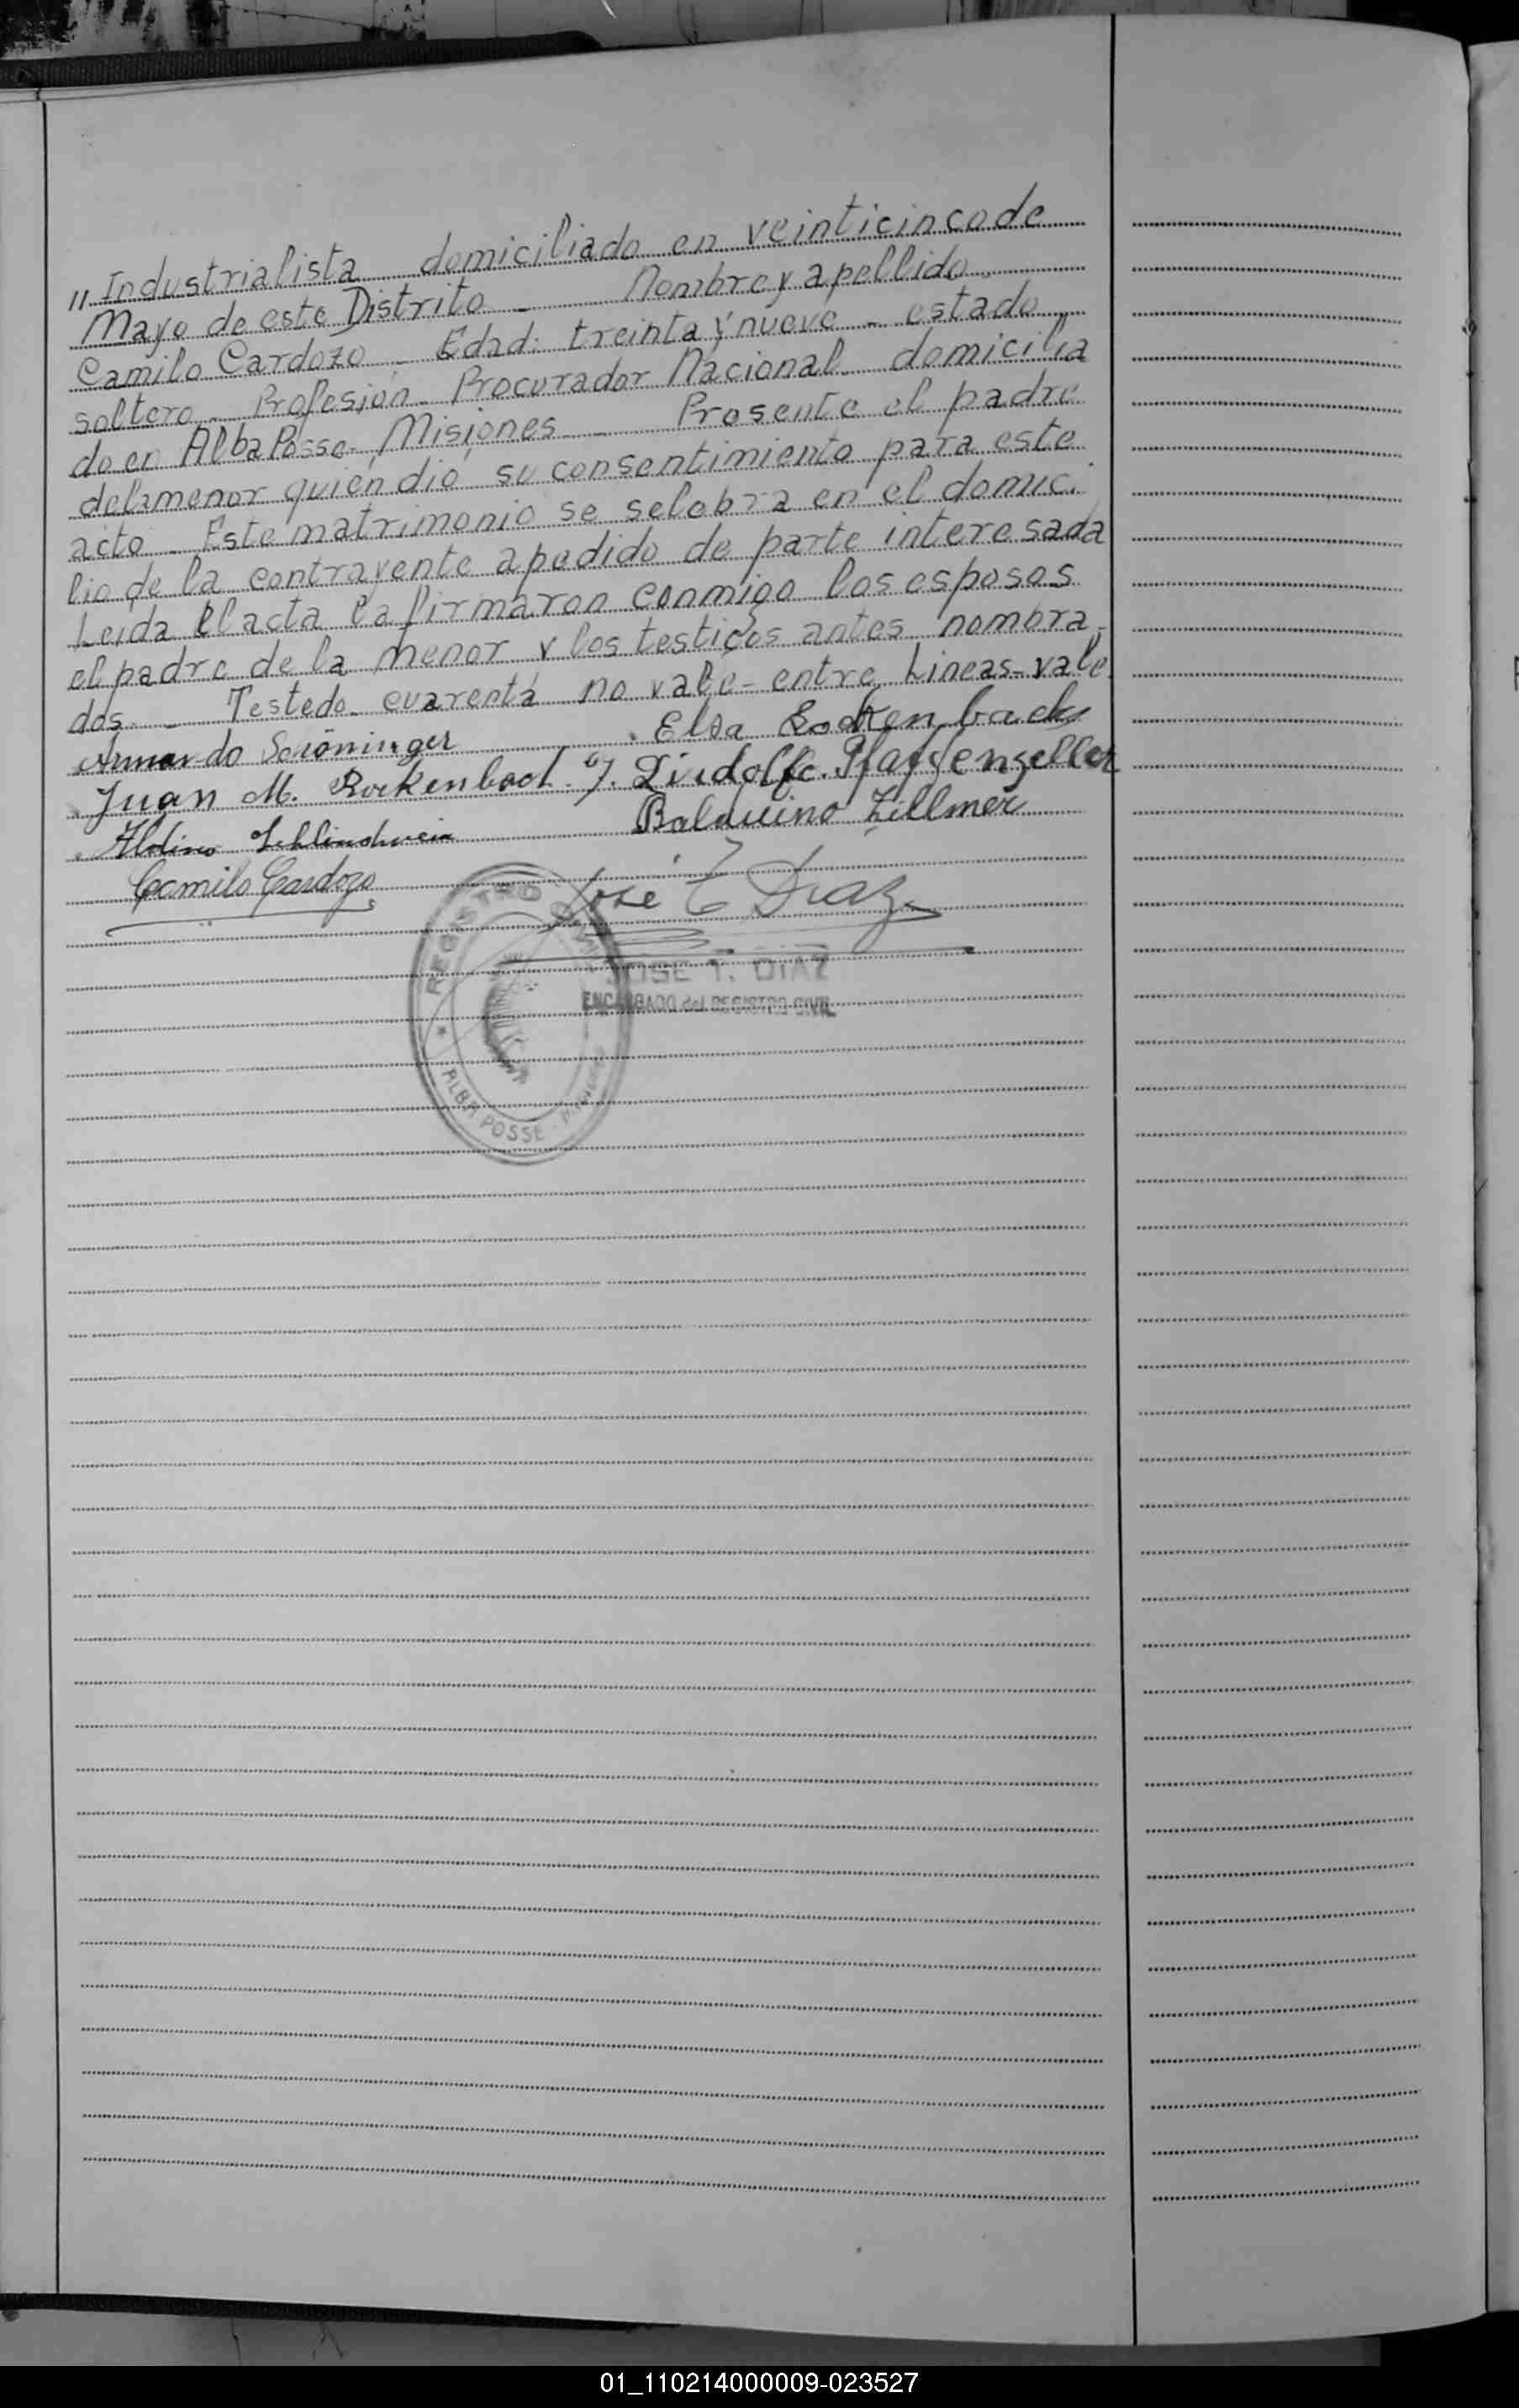 " Industrialista domiciliado en veinticinco de
Mayo de este Distrito - Nombre y apellido.
Camilo Cardozo - Edad: treinta y nueve - estado
soltero - Profesión - Procurador Nacional - domicilia
do en Alba Posse - Misiones - Presente el padre
de la menor quién dió su consentimiento para este
acto - Este matrimonio se selebra en el domic.
lio de la contrayente a pedido de parte interesada
Leida el acta la firmaron conmigo los esposos
el padre de la menor y los testigos antes nombra-
dos. - Testedo - cuarenta no vale - entre Lineas - vale
Armando Schöninger Elsa Rockenback
Juan M. Rockenbach J. Lindolfo Pfaffenzeller
Aldino Schlindwein Balduino Zillmer
Camilo Cardozo José T Diaz
REGISTRO CIVIL
JOSE T. DIAZ
ENCARGADO del REGISTRO CIVIL
ALBA POSSE
01_110214000009-023527